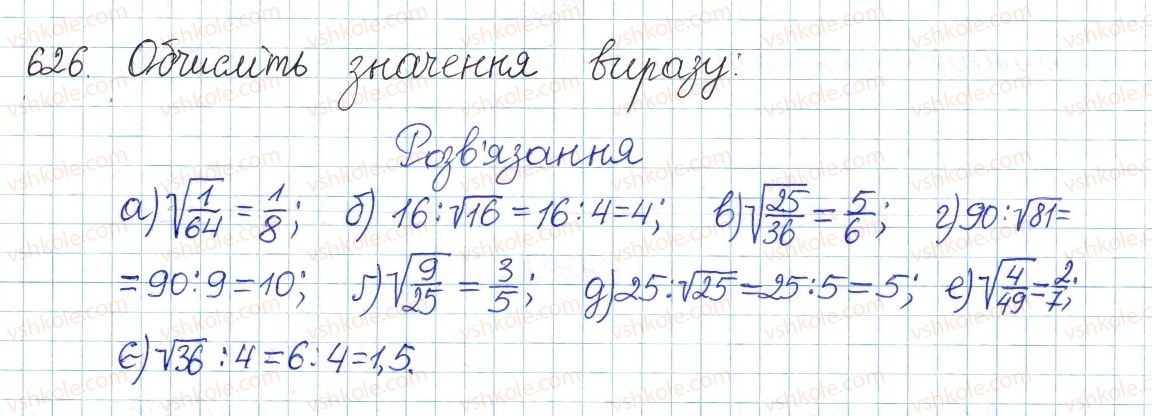 626. Обчисліть значення виразу:
Розв'язання
а) √(1/64) = 1/8; б) 16:√16 = 16:4 = 4; в) √(25/36) = 5/6; г) 90:√81 =
= 90:9 = 10; ґ) √(9/25) = 3/5; д) 25:√25 = 25:5 = 5; е) √(4/49) = 2/7;
є) √36 : 4 = 6 : 4 = 1,5.